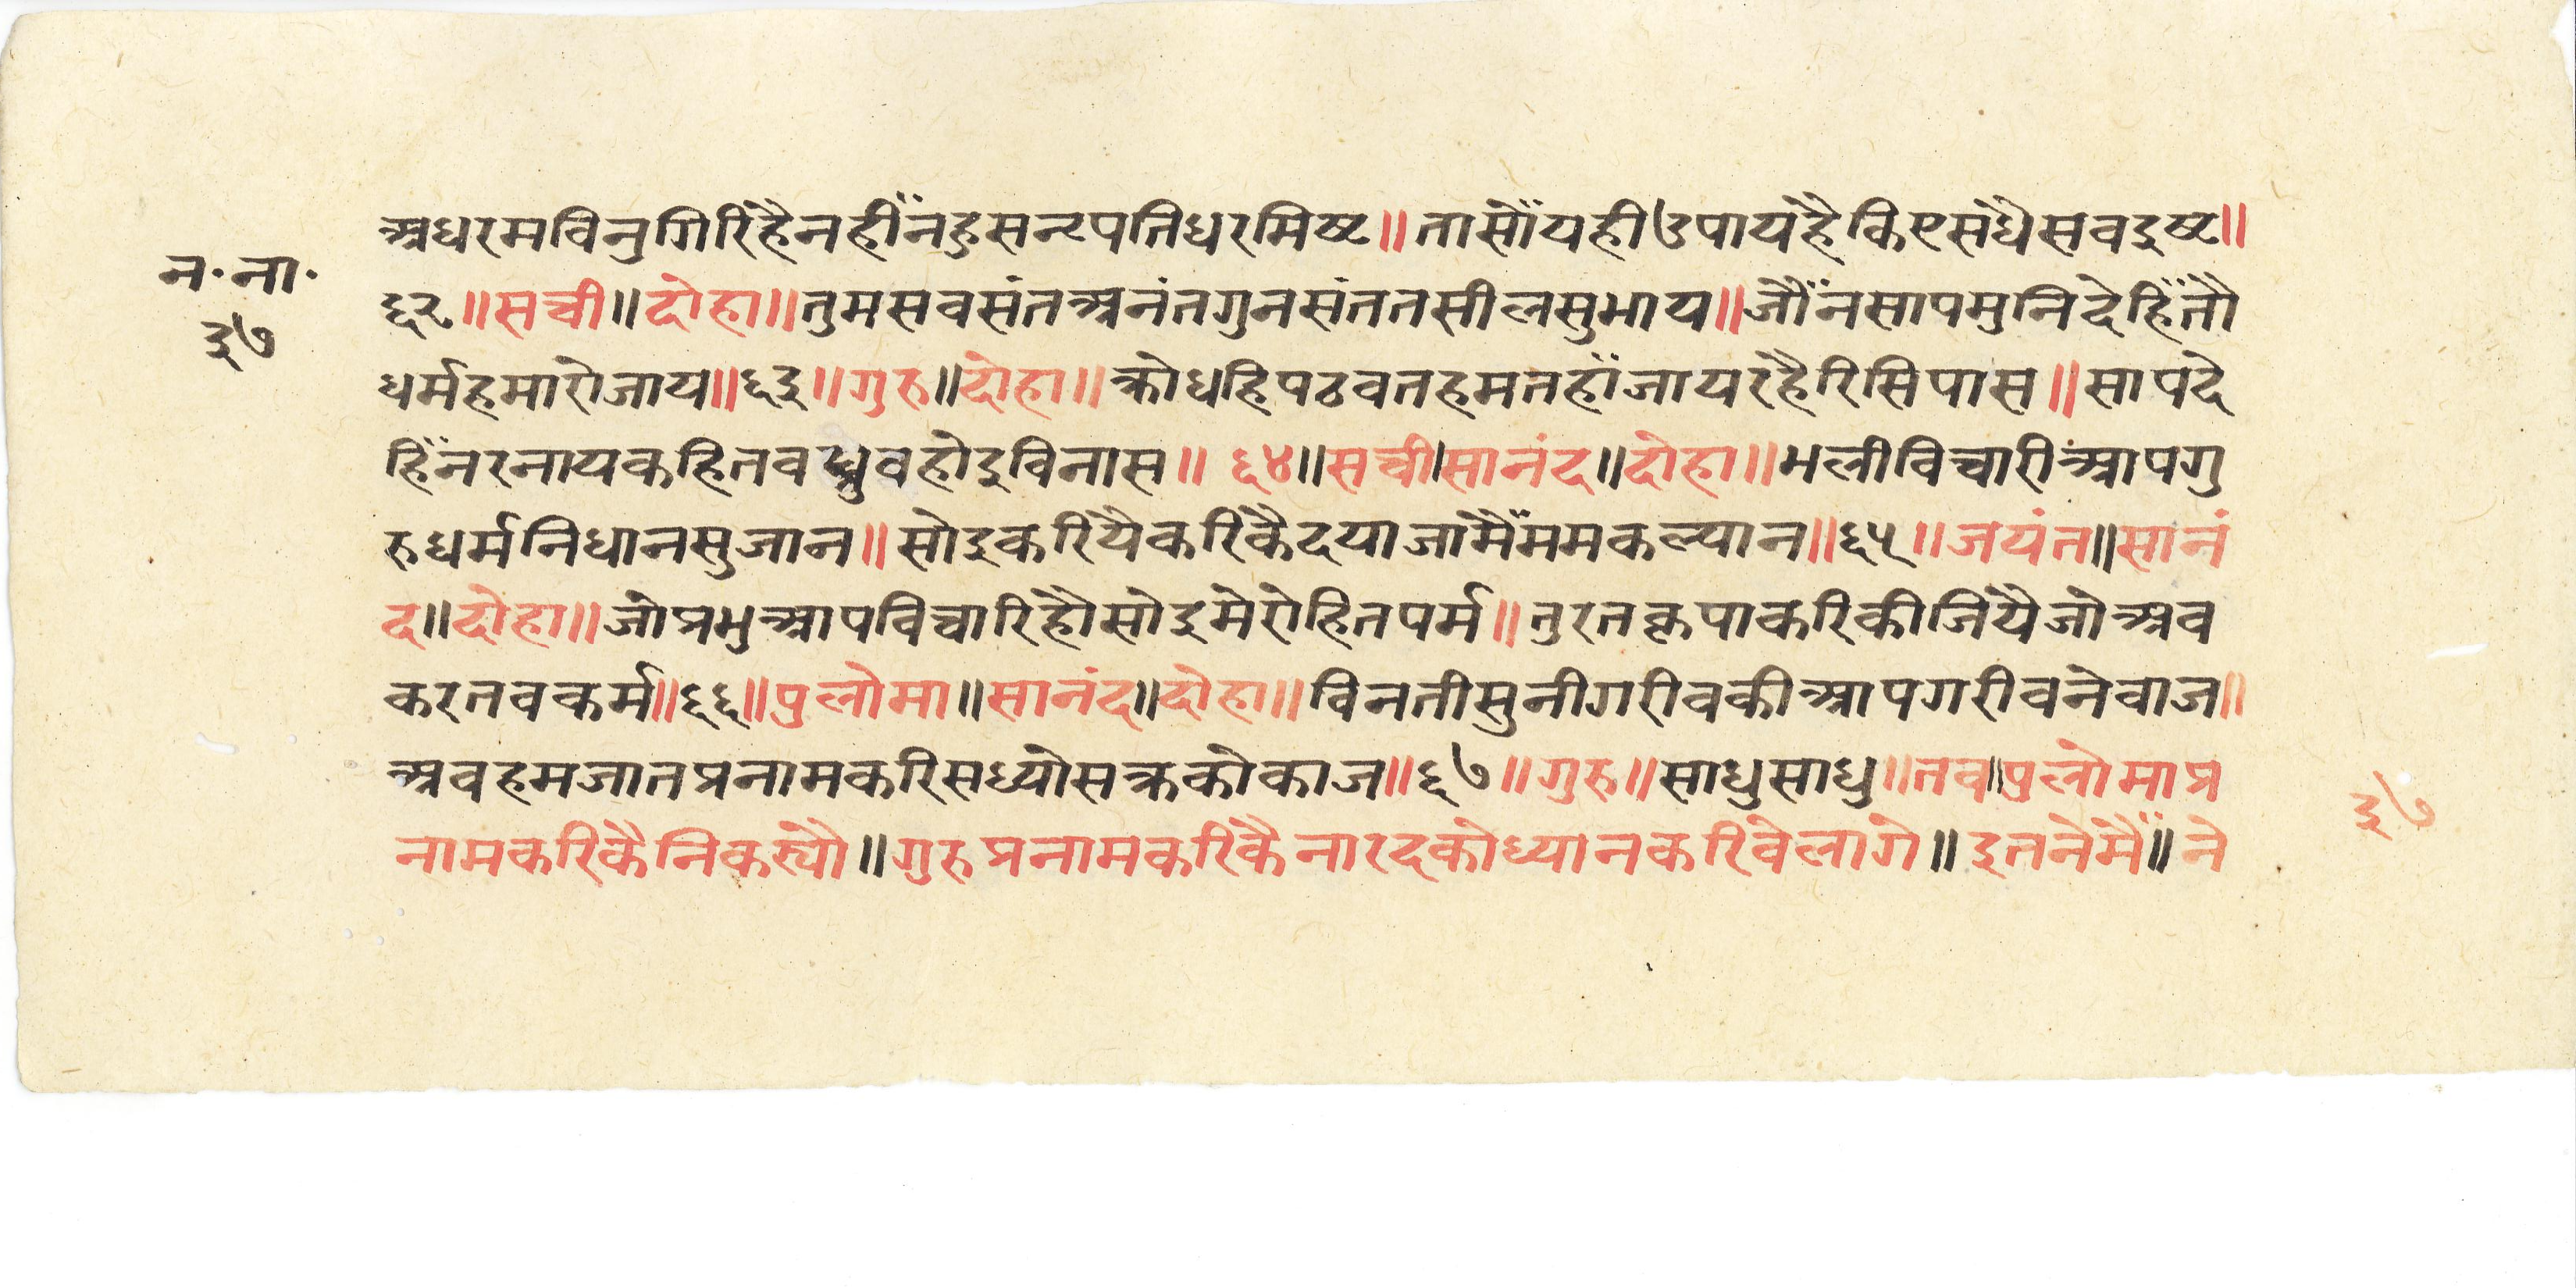 अधरमविनुगिरिहैनहीँनहुसनृपतिधरमिष्ट॥तासौंयहीउपायहैकिएसधैसवदुष्ट॥
न॰ना॰
६२॥सची॥दोहा॥तुमसवसंतअनंतगुनसंततसीलसुभाय॥जौँनसापमुनिदेहिँतौ
३७
धर्महमारोजाय॥६३॥गुरु॥दोहा॥क्रोधहिपठवतहमतहाँजायरहैरिसिपास॥सापदे
हिँनरनायकहितवध्रुवहोइविनास॥६४॥सची॥सानंद॥दोहा॥भलीविचारीआपगु
रुधर्मनिधानसुजान॥सोइकरियैकरिकैदयाजामैँममकल्यान॥६५॥जयंत॥सानं
द॥दोहा॥जोप्रभुआपविचारिहौसोइमेरोहितपर्म॥तुरतकृपाकरिकीजियैजोअव
करतवकर्म॥६६॥पुलोमा॥सानंद॥दोहा॥विनतीसुनीगरीवकीआपगरीवनेवाज॥
अवहमजातप्रनामकरिसध्योसक्रकोकाज॥६७॥गुरु॥साधुसाधु॥तव॥पुलोमाप्र
नामकरिकैनिकस्यौ॥गुरुप्रनामकरिकैनारदकोध्यानकरिवेलागे॥इतनेमैँ॥ने
३७